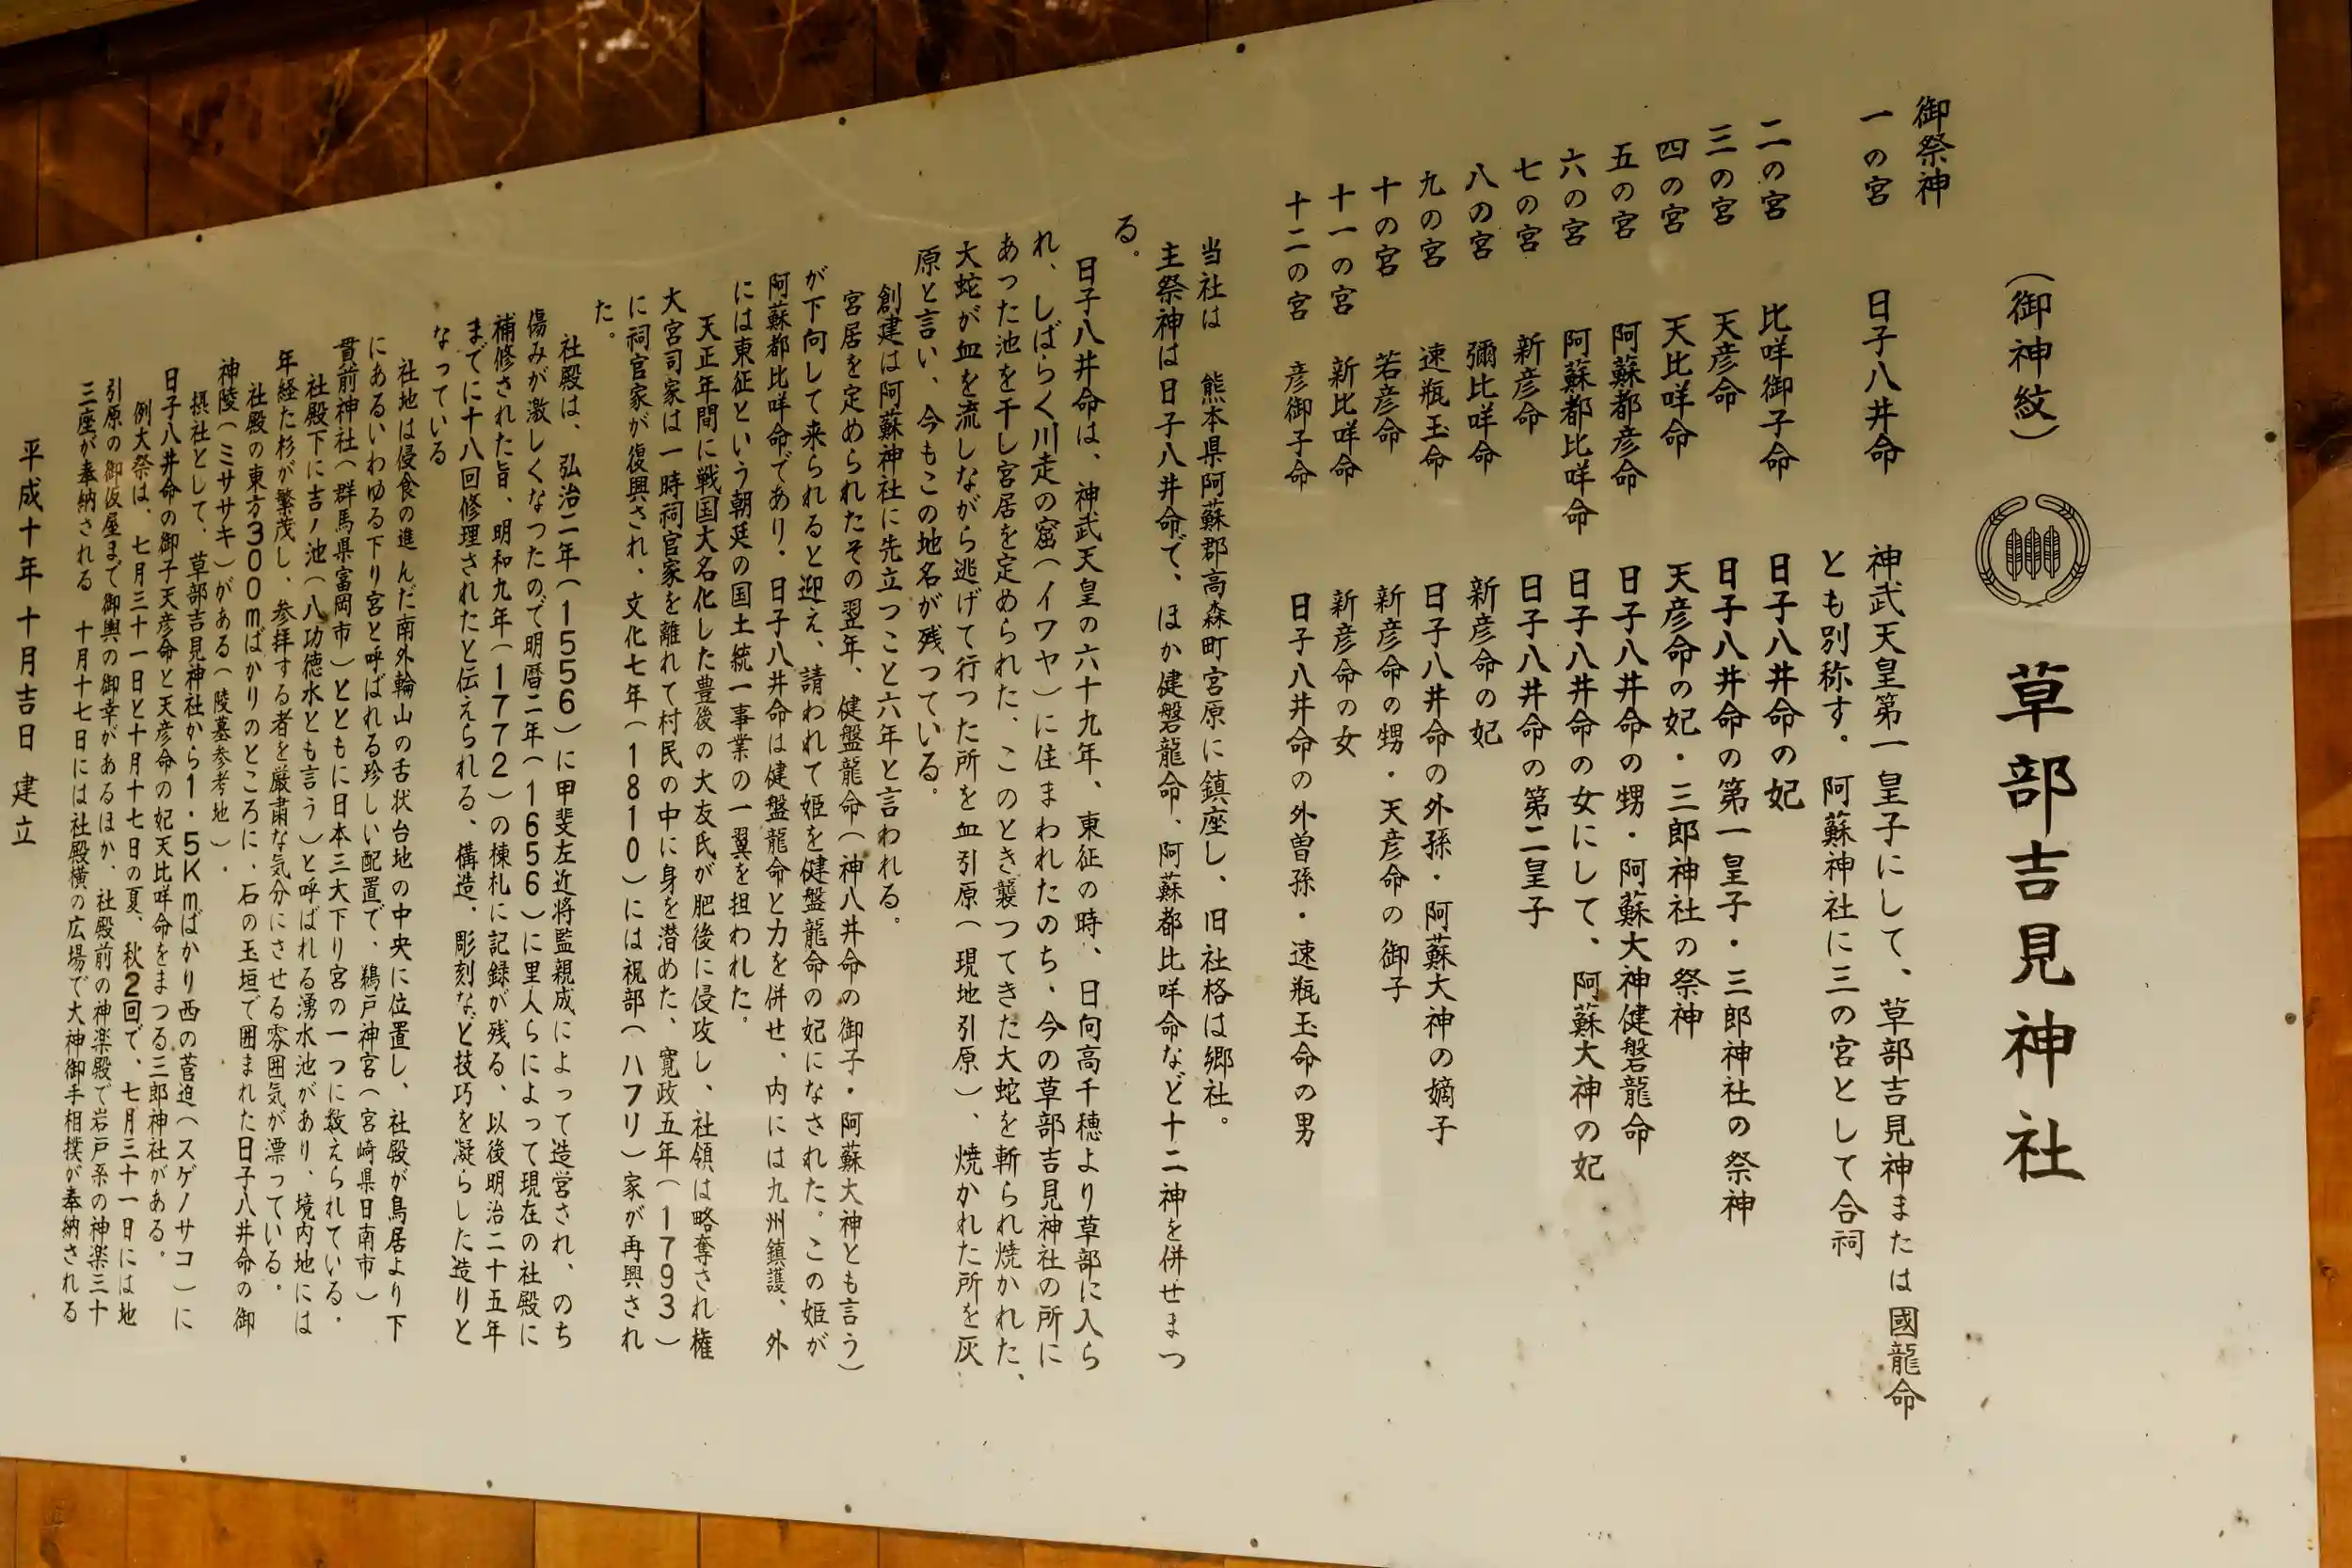 (御神紋) 草部吉見神社
御祭神
一の宮 日子八井命 神武天皇第一皇子にして、草部吉見神または國龍命
とも別称す。阿蘇神社に三の宮として合祠
二の宮 比咩御子命 日子八井命の妃
三の宮 天彦命 日子八井命の第一皇子・三郎神社の祭神
四の宮 天比咩命 天彦命の妃・三郎神社の祭神
五の宮 阿蘇都彦命 日子八井命の甥・阿蘇大神健磐龍命
六の宮 阿蘇都比咩命 日子八井命の女にして、阿蘇大神の妃
七の宮 新彦命 日子八井命の第二皇子
八の宮 彌比咩命 新彦命の妃
九の宮 速瓶玉命 日子八井命の外孫・阿蘇大神の嫡子
十の宮 若彦命 新彦命の甥・天彦命の御子
十一の宮 新比咩命 新彦命の女
十二の宮 彦御子命 日子八井命の外曽孫・速瓶玉命の男
当社は 熊本県阿蘇郡高森町宮原に鎮座し、旧社格は郷社。
主祭神は日子八井命で、ほか健磐龍命、阿蘇都比咩命など十二神を併せまつ
る。
日子八井命は、神武天皇の六十九年、東征の時、日向高千穂より草部に入ら
れ、しばらく川走の窟(イワヤ)に住まわれたのち、今の草部吉見神社の所に
あった池を干し宮居を定められた、このとき襲ってきた大蛇を斬られ焼かれた、
大蛇が血を流しながら逃げて行った所を血引原(現地引原)、焼かれた所を灰
原と言い、今もこの地名が残っている。
創建は阿蘇神社に先立つこと六年と言われる。
宮居を定められたその翌年、健盤龍命(神八井命の御子・阿蘇大神とも言う)
が下向して来られると迎え、請われて姫を健盤龍命の妃になされた。この姫が
阿蘇都比咩命であり・日子八井命は健盤龍命と力を併せ、内には九州鎮護、外
には東征という朝廷の国土統一事業の一翼を担われた。
天正年間に戦国大名化した豊後の大友氏が肥後に侵攻し、社領は略奪され権
大宮司家は一時祠官家を離れて村民の中に身を潜めた、寛政五年(1793)
に祠官家が復興され、文化七年(1810)には祝部(ハフリ)家が再興され
た。
社殿は、弘治二年(1556)に甲斐左近将監親成によって造営され、のち
傷みが激しくなったので明暦二年(1656)に里人らによって現在の社殿に
補修された旨、明和九年(1772)の棟札に記録が残る、以後明治二十五年
までに十八回修理されたと伝えられる、構造、彫刻など技巧を凝らした造りと
なっている
社地は侵食の進んだ南外輪山の舌状台地の中央に位置し、社殿が鳥居より下
にあるいわゆる下り宮と呼ばれる珍しい配置で、鵜戸神宮(宮崎県日南市)
貫前神社(群馬県富岡市)とともに日本三大下り宮の一つに数えられている・
社殿下に吉ノ池(八功徳水とも言う)と呼ばれる湧水池があり、境内地には
年経た杉が繁茂し、参拝する者を厳粛な気分にさせる雰囲気が漂っている・
社殿の東方300mばかりのところに、石の玉垣で囲まれた日子八井命の御
神陵(ミササキ)がある(陵墓参考地)・
摂社として、草部吉見神社から1・5Kmばかり西の菅迫(スゲノサコ)に
日子八井命の御子天彦命と天彦命の妃天比咩命をまつる三郎神社がある・
例大祭は、七月三十一日と十月十七日の夏、秋2回で、七月三十一日には地
引原の御仮屋まで御輿の御幸があるほか、社殿前の神楽殿で岩戸系の神楽三十
三座が奉納される 十月十七日には社殿横の広場で大神御手相撲が奉納される
平成十年十月吉日 建立